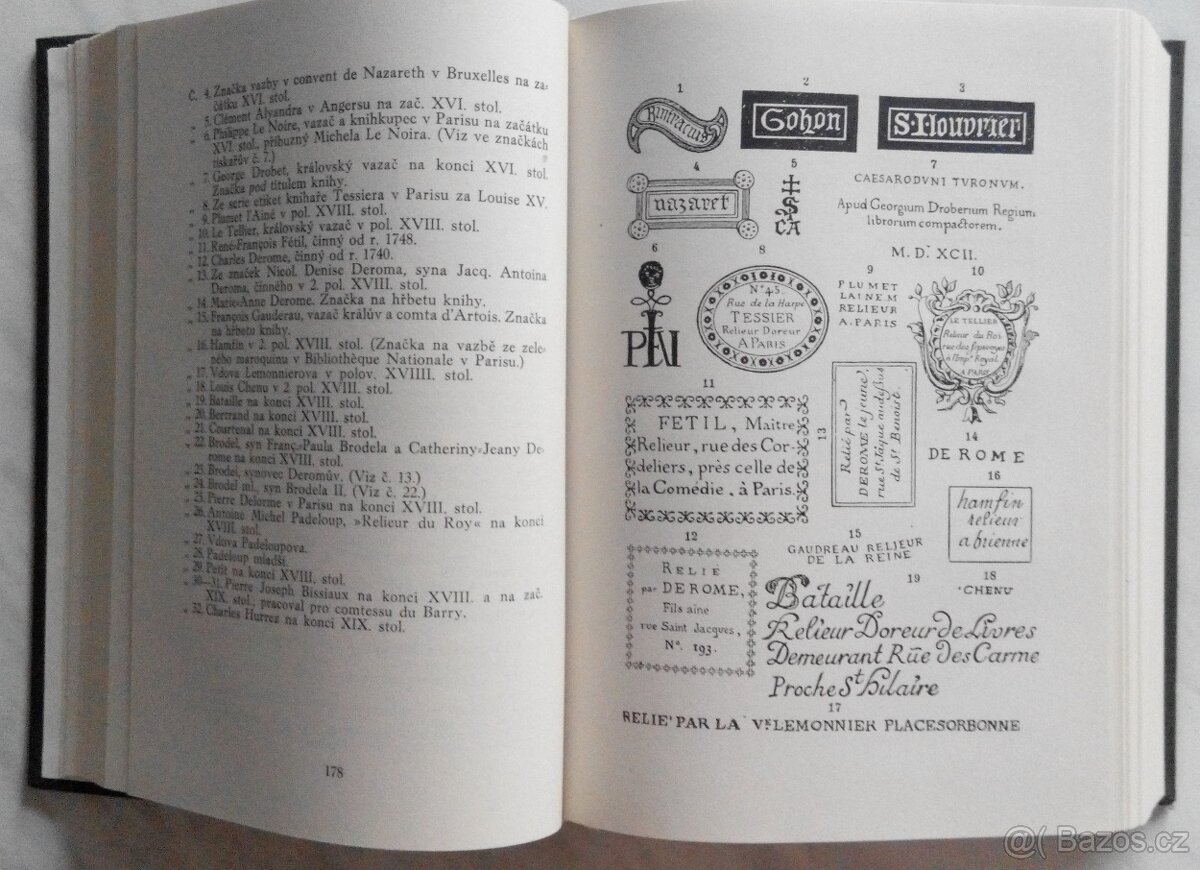 Č. 4. Značka vazby v convent de Nazareth v Bruxelles na za-
čátku XVI. stol.
„ 5. Clément Alyandra v Angersu na zač. XVI. stol.
„ 6. Philippe Le Noire, vazač a knihkupec v Parisu na začátku
XVI. stol., příbuzný Michela Le Noira. (Viz ve značkách
tiskařův č. 7.)
„ 7. George Drobet, královský vazač na konci XVI. stol.
Značka pod titulem knihy.
„ 8. Ze serie etiket knihaře Tessiera v Parisu za Louise XV.
„ 9. Plumet l'Ainé v pol. XVIII. stol.
„ 10. Le Tellier, královský vazač v pol. XVIII. stol.
„ 11. René-François Fétil, činný od r. 1748.
„ 12. Charles Derome, činný od r. 1740.
„ 13. Ze značek Nicol. Denise Deroma, syna Jacq. Antoina
Deroma, činného v 2. pol. XVIII. stol.
„ 14. Marie-Anne Derome. Značka na hřbetu knihy.
„ 15. François Gauderau, vazač králův a comta d'Artois. Značka
na hřbetu knihy.
„ 16. Hamfin v 2. pol. XVIII. stol. (Značka na vazbě ze zele-
ného maroquinu v Bibliothèque Nationale v Parisu.)
„ 17. Vdova Lemonnierova v polov. XVIIII. stol.
„ 18. Louis Chenu v 2. pol. XVIII. stol.
„ 19. Bataille na konci XVIII. stol.
„ 20. Bertrand na konci XVIII. stol.
„ 21. Courtenal na konci XVIII. stol.
„ 22. Brodel, syn Franç.-Paula Brodela a Catheriny-Jeany De-
rome na konci XVIII. stol.
„ 23. Brodel, synovec Deromův. (Viz č. 13.)
„ 24. Brodel ml., syn Brodela II. (Viz č. 22.)
„ 25. Pierre Delorme v Parisu na konci XVIII. stol.
„ 26. Antoine Michel Padeloup, »Relieur du Roy« na konci
XVIII. stol.
„ 27. Vdova Padeloupova.
„ 28. Padeloup mladší.
„ 29. Petit na konci XVIII. stol.
„ 30—31. Pierre Joseph Bissiaux na konci XVIII. a na zač.
XIX. stol., pracoval pro comtessu du Barry.
„ 32. Charles Hurrez na konci XIX. stol.
178
1
2
Gohon
3
4
nazaret
5
7
CAESARODVNI TVRONVM.
Apud Georgium Droberium Regium
librorum compactorem.
M. D. XCII.
6
8
N° 45
Rue de la Harpe
TESSIER
Relieur Doreur
A PARIS
9
PLUMET
LAINEM
RELIEUR
A.PARIS
10
LE TELLIER
Relieur du Roi
A PARIS
11
FETIL, Maitre
Relieur, rue des Cor-
deliers, près celle de
la Comédie, à Paris.
13
Relié par
DEROME le jeune,
rue St. Jaque audessus
de St Benoist.
14
DE ROME
16
hamfin
relieur
a brienne
12
RELIE
par DEROME,
Fils aine
rue Saint Jacques,
N°. 193.
15
GAUDREAU RELJEUR
DE LA REINE
18
CHENU
19
Bataille
Relieur Doreur de Livres
Demeurant Rüe des Carme
Proche St hilaire
17
RELIE' PAR LA Ve. LEMONNIER PLACE SORBONNE
@( Bazos.cz